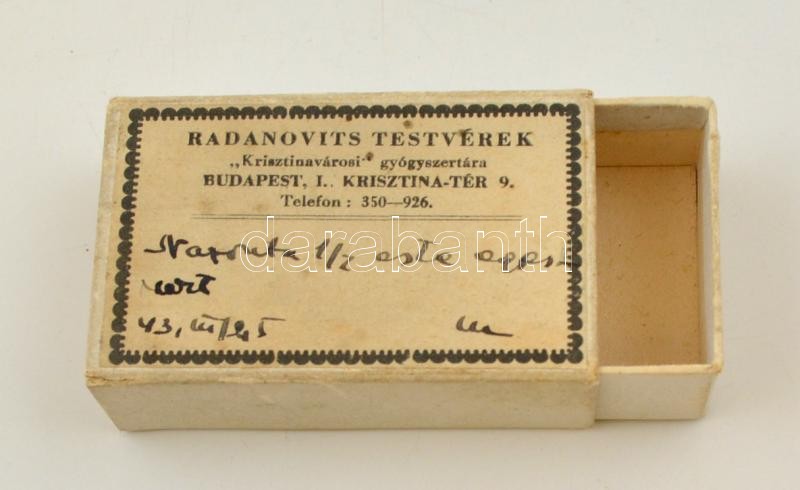 RADANOVITS TESTVÉREK
„Krisztinavárosi” gyógyszertára
BUDAPEST, I. KRISZTINA-TÉR 9.
Telefon : 350—926.
Naponta 1/2 este egész
darabanth
43, III/25